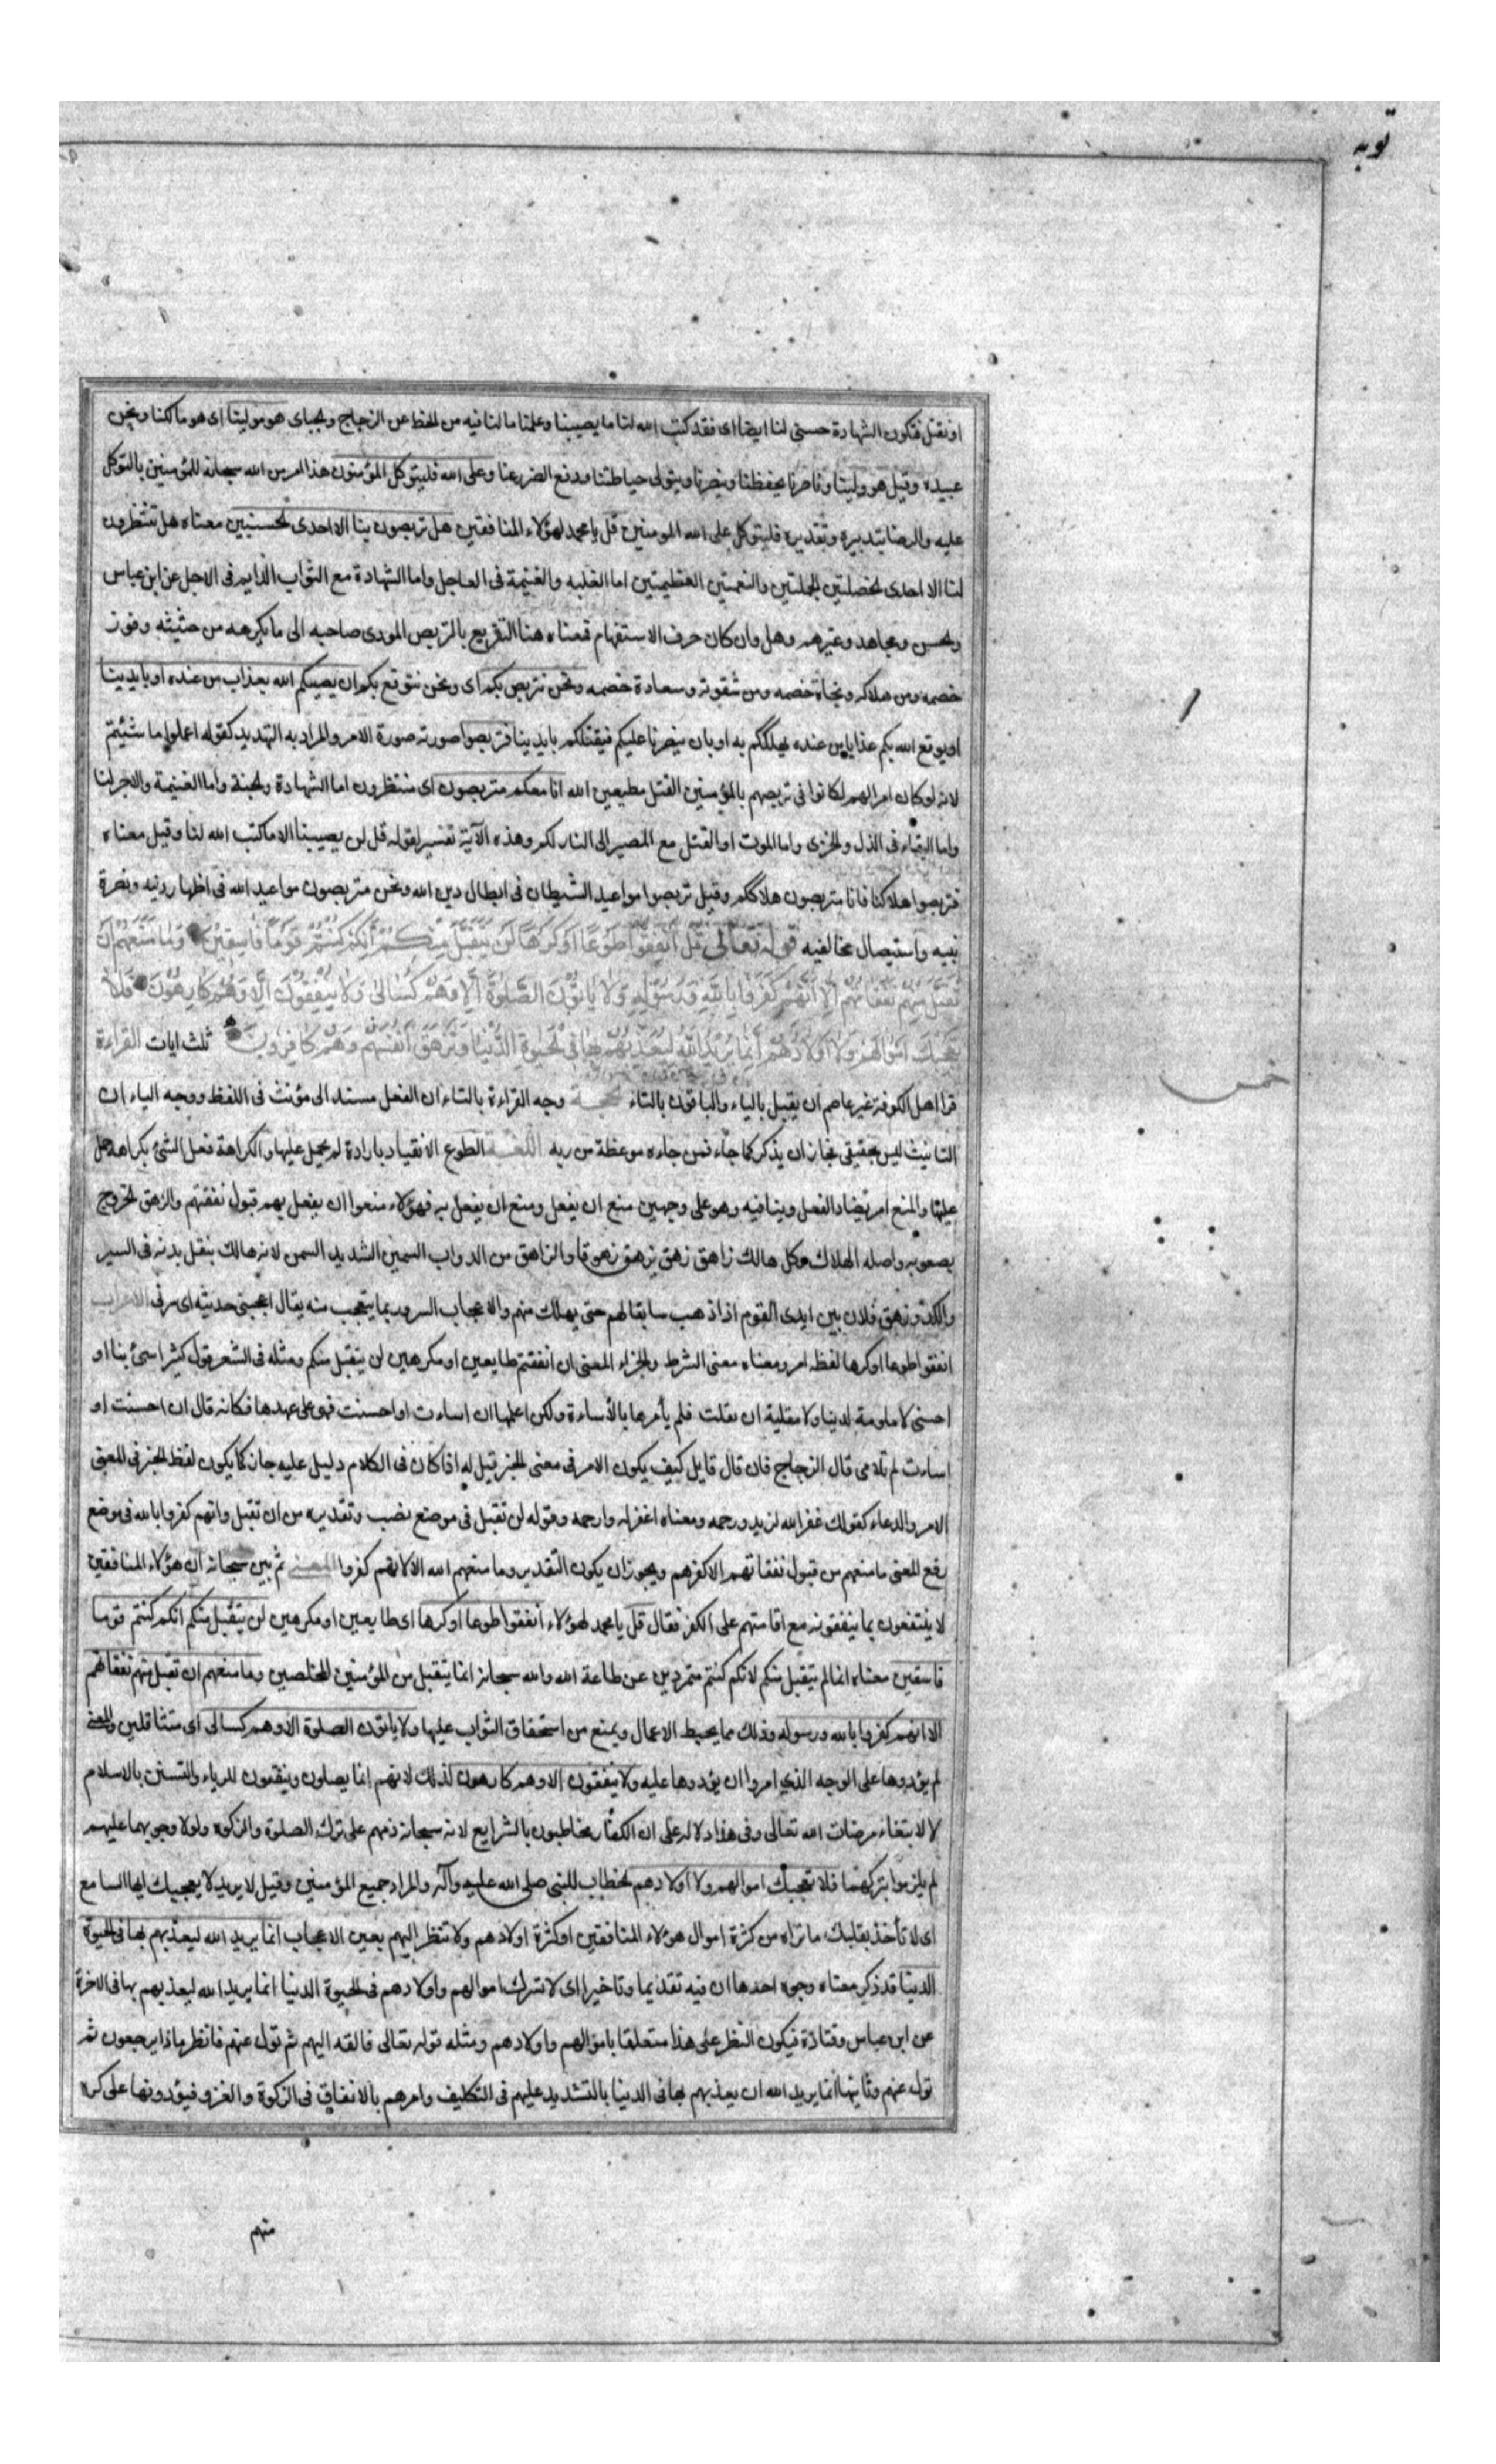 توبه
او نقتل فتكون الشهادة حسنى لنا ايضا اى فقد كتب الله لنا ما يصيبنا وعلمنا ما لنا فيه من الحظ عن الزجاج والجباى هو مولينا اى هو مالكنا ونحن
عبيده وقيل هو ولينا وناصرنا يحفظنا وينصرنا ويتولى حياطتنا ودفع الضرر عنا وعلى الله فليتوكل المؤمنون هذا امر من الله سبحانه للمؤمنين بالتوكل
عليه والرضا بتدبيره وتقديره فليتوكل على الله المومنين قل يا محمد لهؤلاء المنافقين هل تربصون بنا الا احدى الحسنيين معناه هل تنتظرون
لنا الا احدى الخصلتين الجملتين والنعمتين العظيمتين اما الغلبه والغنيمة فى العاجل واما الشهادة مع الثواب الدايم فى الاجل عن ابن عباس
والحسن ومجاهد وغيرهم وهل وان كان حرف الاستفهام فمعناه هنا التقريع بالتربص المودى صاحبه الى ما يكرهه من خيبته وفوز
خصمه ومن هلاكه ونجاة خصمه ومن شقوته وسعادة خصمه ونحن نتربص بكم اى ونحن نتوقع بكم ان يصيبكم الله بعذاب من عنده او بايدينا
او يوقع الله بكم عذابا من عنده يهلككم به او بان ينصرنا عليكم فيقتلكم بايدينا فتربصوا صورته صورة الامر والمراد به التهديد كقوله اعملوا ما شئتم
لانه لو كان امرا لهم لكانوا فى تربصهم بالمؤمنين القتل مطيعين الله انا معكم متربصون اى منتظرون اما الشهادة والجنة واما الغنيمة والاجر لنا
واما البقاء فى الذل والخزى واما الموت او القتل مع المصير الى النار لكم وهذه الآية تفسير لقوله قل لن يصيبنا الا ما كتب الله لنا وقيل معناه
فتربصوا هلاكنا فانا متربصون هلاككم وقيل تربصوا مواعيد الشيطان فى ابطال دين الله ونحن متربصون مواعيد الله فى اظهار دينه ونصرة
نبيه واستيصال مخالفيه قوله تعالى قل انفقوا طوعا او كرها لن يتقبل منكم انكم كنتم قوما فاسقين وما منعهم ان
تقبل منهم نفقاتهم الا انهم كفروا بالله وبرسوله ولا ياتون الصلوة الا وهم كسالى ولا ينفقون الا وهم كارهون فلا
تعجبك اموالهم ولا اولادهم انما يريد الله ليعذبهم بها فى الحيوة الدنيا وتزهق انفسهم وهم كافرون ثلث ايات القراءة
قرا اهل الكوفة غير عاصم ان يقبل بالياء والباقون بالتاء الحجة وجه القراءة بالتاء ان الفعل مسند الى مؤنث فى اللفظ ووجه الياء ان
التانيث ليس بحقيقى فجاز ان يذكر كما جاء فمن جاءه موعظة من ربه اللغة الطوع الانقياد بارادة لم يحمل عليها والكراهة فعل الشئ بكراهة حمل
عليها والمنع امر يضاد الفعل وينافيه وهو على وجهين منع ان يفعل ومنع ان يفعل به فهؤلاء منعوا ان يفعل بهم قبول نفقتهم والزهق الخروج
بصعوبه واصله الهلاك وكل هالك زاهق زهق يزهق زهوقا والزاهق من الدواب السمين الشديد السمن لانه هالك بثقل بدنه فى السير
والكد وزهق فلان بين ايدى القوم اذا ذهب سابقا لهم حتى يهلك منهم والاعجاب السرور بما يتعجب منه يقال اعجبنى حديثه اى سرنى الاعراب
انفقوا طوعا او كرها لفظه امر ومعناه معنى الشرط والجزاء المعنى ان انفقتم طايعين او مكرهين لن يتقبل منكم ومثله فى الشعر قول كثير اسئ بنا او
احسنى لا ملومة لدينا ولا مقلية ان تقلت فلم يأمرها بالأساءة ولكن اعلمها ان اساءت او احسنت فهو على عهدها فكانه قال ان احسنت او
اساءت لم تلامى قال الزجاج فان قال قايل كيف يكون الامر فى معنى الخبر قيل له اذا كان فى الكلام دليل عليه جاز كما يكون لفظ الخبر فى المعنى
الامر والدعاء كقولك غفر الله لزيد ورحمه ومعناه اغفر له وارحمه وقوله لن تقبل فى موضع نصب وتقديره من ان تقبل وانهم كفروا بالله فى موضع
رفع المعنى ما منعهم من قبول نفقاتهم الا كفرهم ويجوز ان يكون التقدير وما منعهم الله الا لانهم كفروا المعنى ثم بين سبحانه ان هؤلاء المنافقين
لا ينتفعون بما ينفقونه مع اقامتهم على الكفر فقال قل يا محمد لهؤلاء انفقوا طوعا او كرها اى طايعين او مكرهين لن يتقبل منكم انكم كنتم قوما
فاسقين معناه انما لم يتقبل منكم لانكم كنتم متمردين عن طاعة الله والله سبحانه انما يتقبل من المؤمنين المخلصين وما منعهم ان تقبل منهم نفقاتهم
الا انهم كفروا بالله ورسوله وذلك مما يحبط الاعمال ويمنع من استحقاق الثواب عليها ولا ياتون الصلوة الا وهم كسالى اى متثاقلين والمعنى
لم يؤدوها على الوجه الذي امروا ان يؤدوها عليه ولا ينفقون الا وهم كارهون لذلك لانهم إنما يصلون وينفقون للرياء والتستر بالاسلام
لا لابتغاء مرضات الله تعالى وفى هذا دلاله على ان الكفار مخاطبون بالشرايع لانه سبحانه ذمهم على ترك الصلوة والزكوه ولولا وجوبهما عليهم
لم يلزموا بتركهما فلا تعجبك اموالهم ولا اولادهم الخطاب للنبى صلى الله عليه وآله والمراد جميع المؤمنين وقيل لا يريد لا يعجبك ايها السامع
اى لا تأخذ بقلبك ما تراه من كثرة اموال هؤلاء المنافقين او كثرة اولادهم ولا تنظر إليهم بعين الاعجاب انما يريد الله ليعذبهم بها فى الحيوة
الدنيا قد ذكر معناه وجوه احدها ان فيه تقديما وتاخيرا اى لا تسرك اموالهم واولادهم فى الحيوة الدنيا انما يريد الله ليعذبهم بها فى الاخرة
عن ابن عباس وقتادة فيكون النظر على هذا متعلقا باموالهم واولادهم ومثله قوله تعالى فالقه اليهم ثم تول عنهم فانظر ماذا يرجعون ثم
تول عنهم وثانيها انما يريد الله ان يعذبهم بها فى الدنيا بالتشديد عليهم فى التكليف وامرهم بالانفاق فى الزكوة والغزو فيؤدونها على كره
منهم